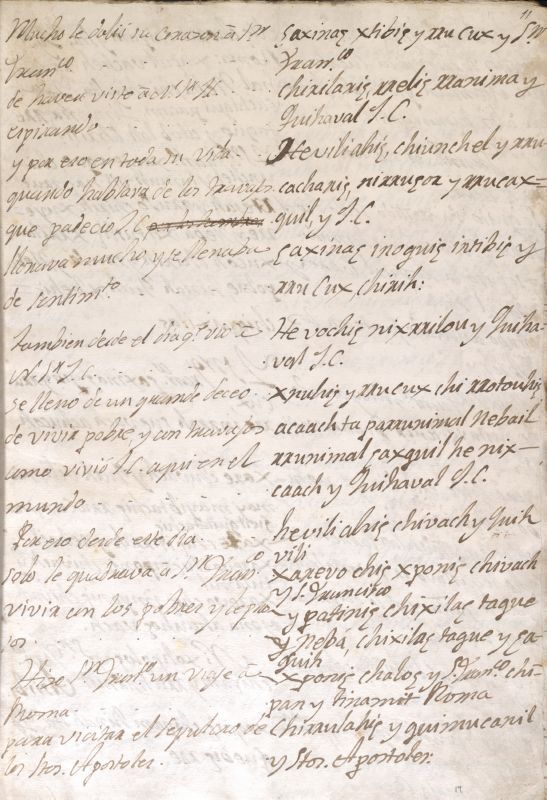 11
Mucho le dolió su corazon à Sn
Franco
de haver visto à N. Sr. 
espirando
y por eso en toda su vida
quando hablara de los trauaxos
que padecio J.C.
llorava mucho, y se llenaba
de sentimto
tambien desde el dia q.e vio a
N. Sr. J.C.
se lleno de un grande deceo
de vivir pobre, y con travajos
como vivió J.C. aqui en el
mundo
Por eso desde este dia
solo le quadrava à Sn Franco
vivir con los pobres y lepro
sos.
Hizo Sn Franco un viaje à
Roma
para visitar el sepulcro de
los Stos. Apostoles.
çaxinaç xtibiç y rru cux y Sn
Franco
chixilariç rreliç rranima y
Quihaval J.C.
Heviliahiç, chiunchel y rru
cachariç, nirruçox y rrucax-
quil y J.C.
çaxinaç inoquiç intibiç y
rru cux chirih:
He vochiç nixrrilou y Quiha-
val J.C.
xnuhiç y rru cux chi rrotouhiç
acaach ta parrunimal Nebail
rrunimal çaxquil he nix-
caach y Quihaval J.C.
heviliahiç chivach y Quih
vili
xarevo chiç xponiç chivach
y S. Francisco
y patiniç chixilaç taque
y neba, chixilaç taque y ça-
quih
xponiç chaloç y S. Franco chi-
pan y tinamit Roma
chirrulahiç y quimucanil
y Stos. Apostoles: